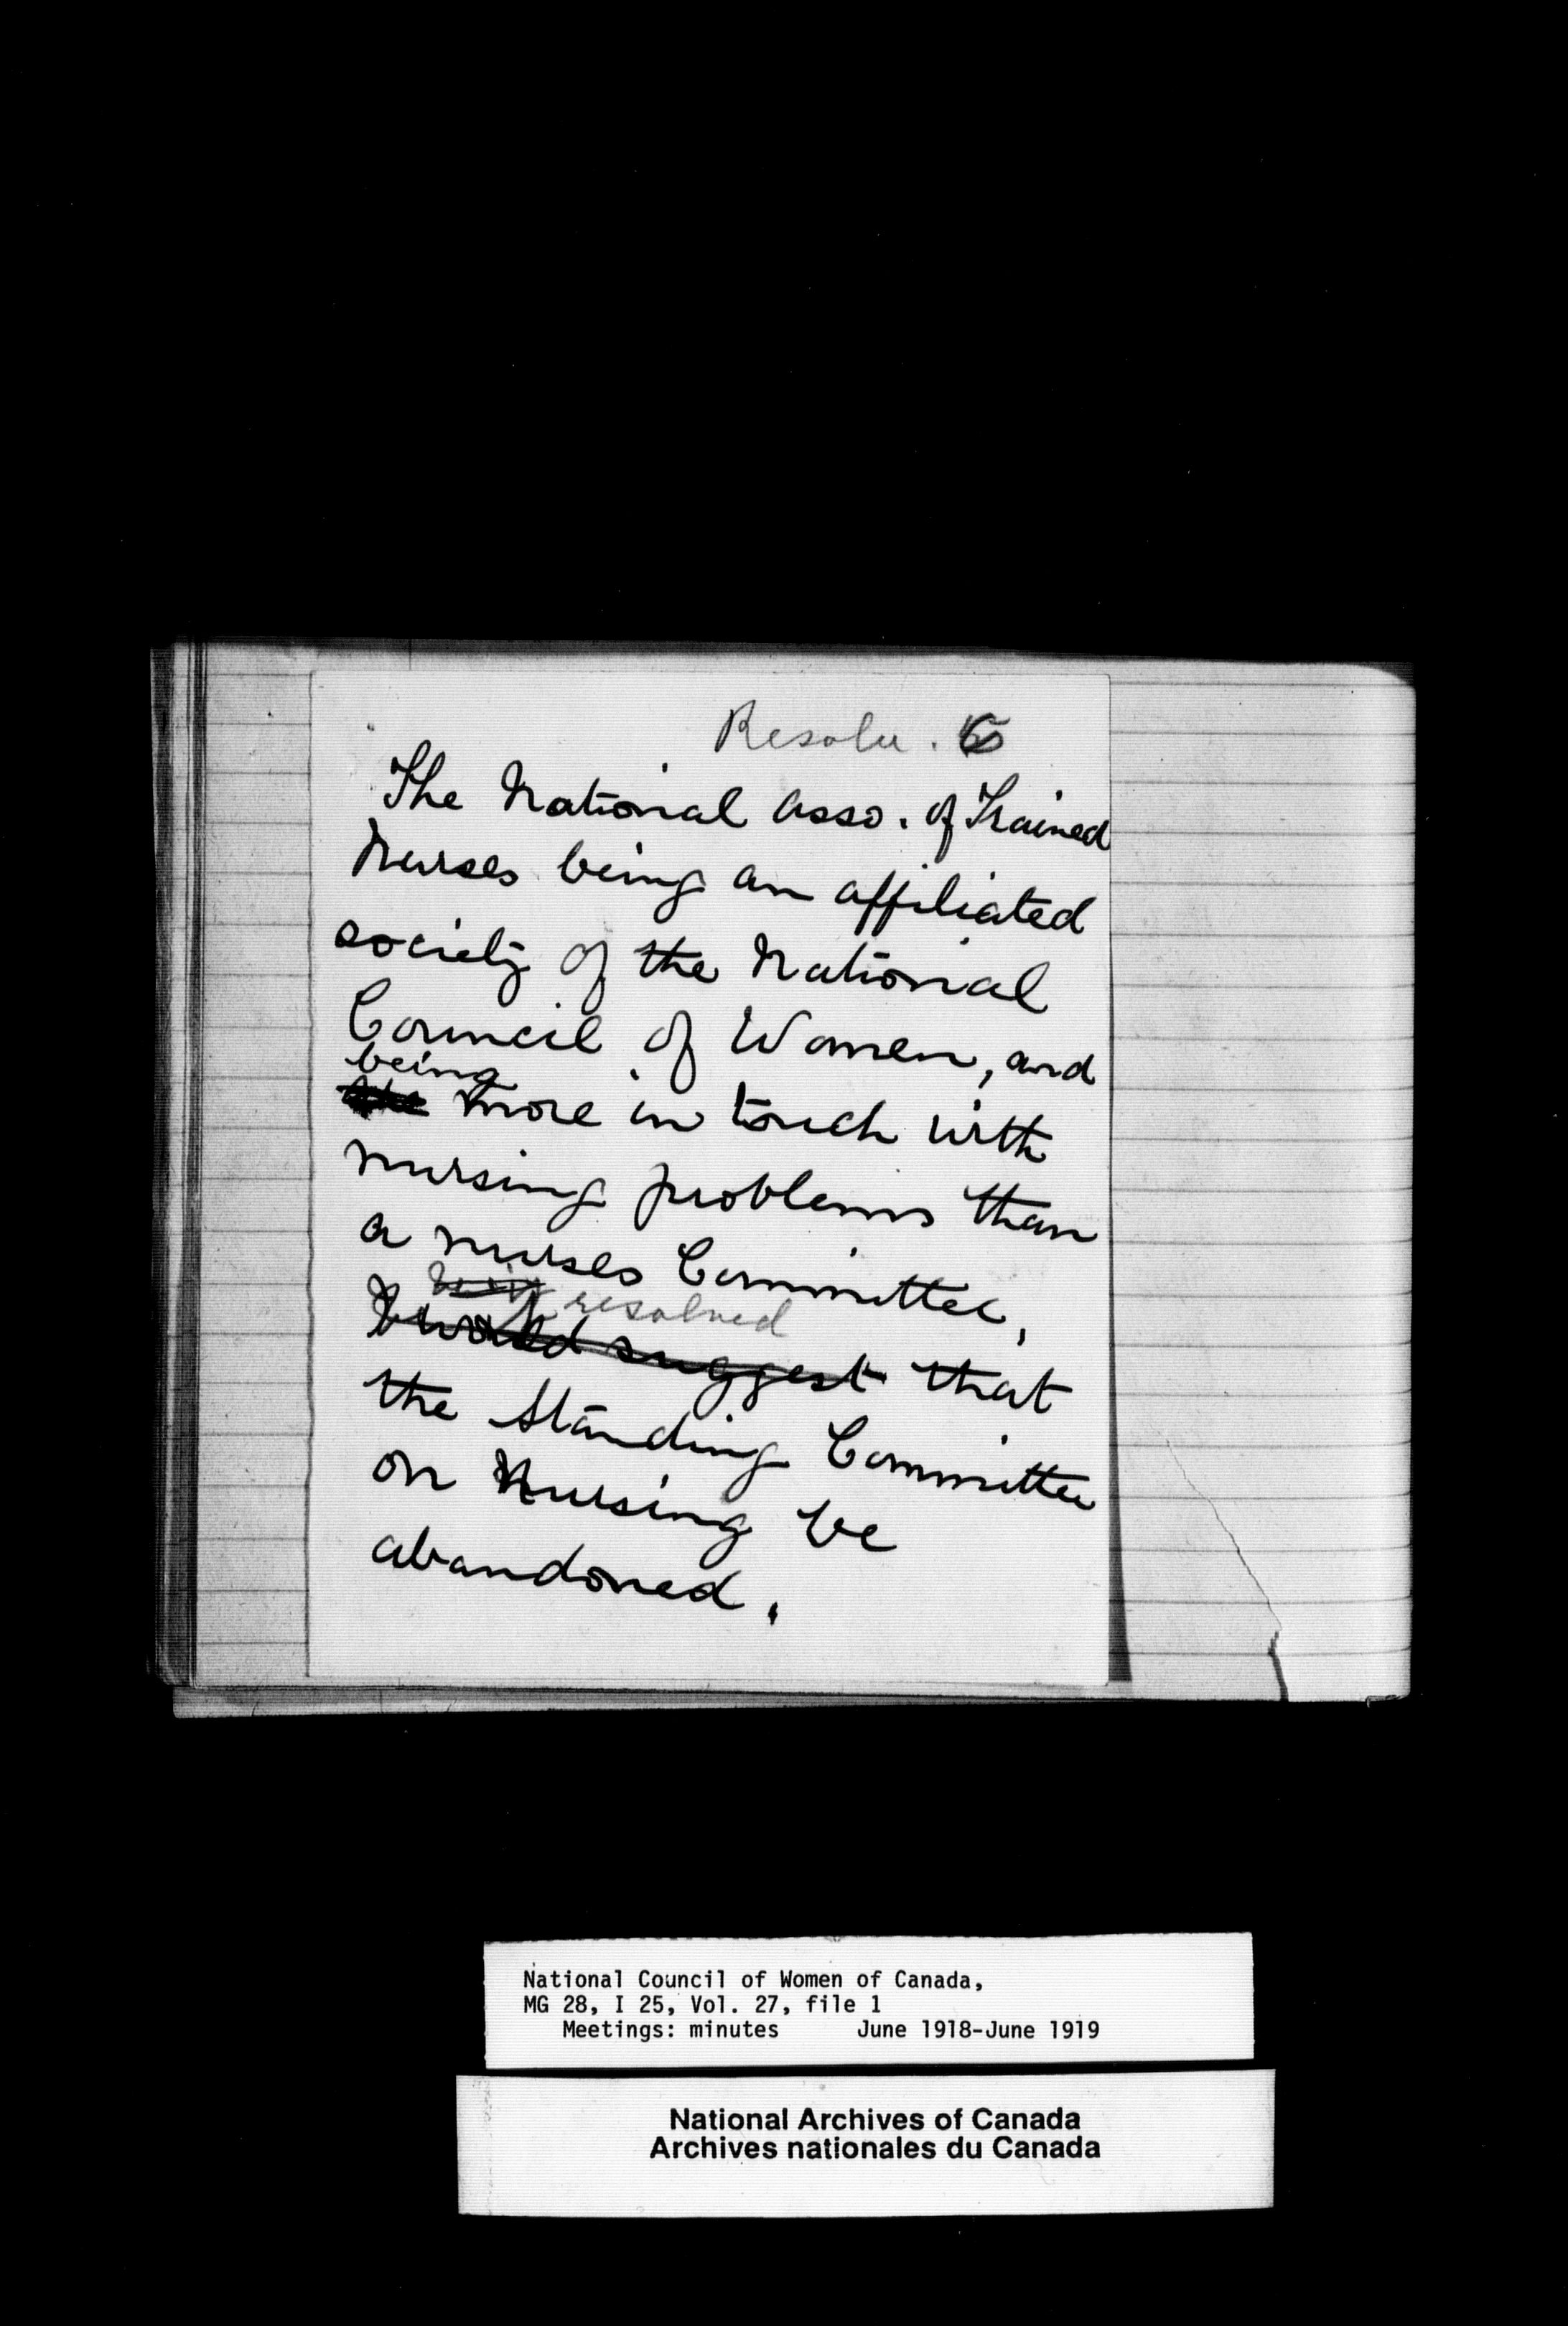 Resolu. 6
The National Asso. of Trained
Nurses being an affiliated
society of the National
Council of Women, and
being
more in touch with
nursing problems than
a nurses Committee,
resolved
I would suggest that
the Standing Committee
on Nursing be
abandoned.
National Council of Women of Canada,
MG 28, I 25, Vol. 27, file 1
Meetings: minutes June 1918-June 1919
National Archives of Canada
Archives nationales du Canada